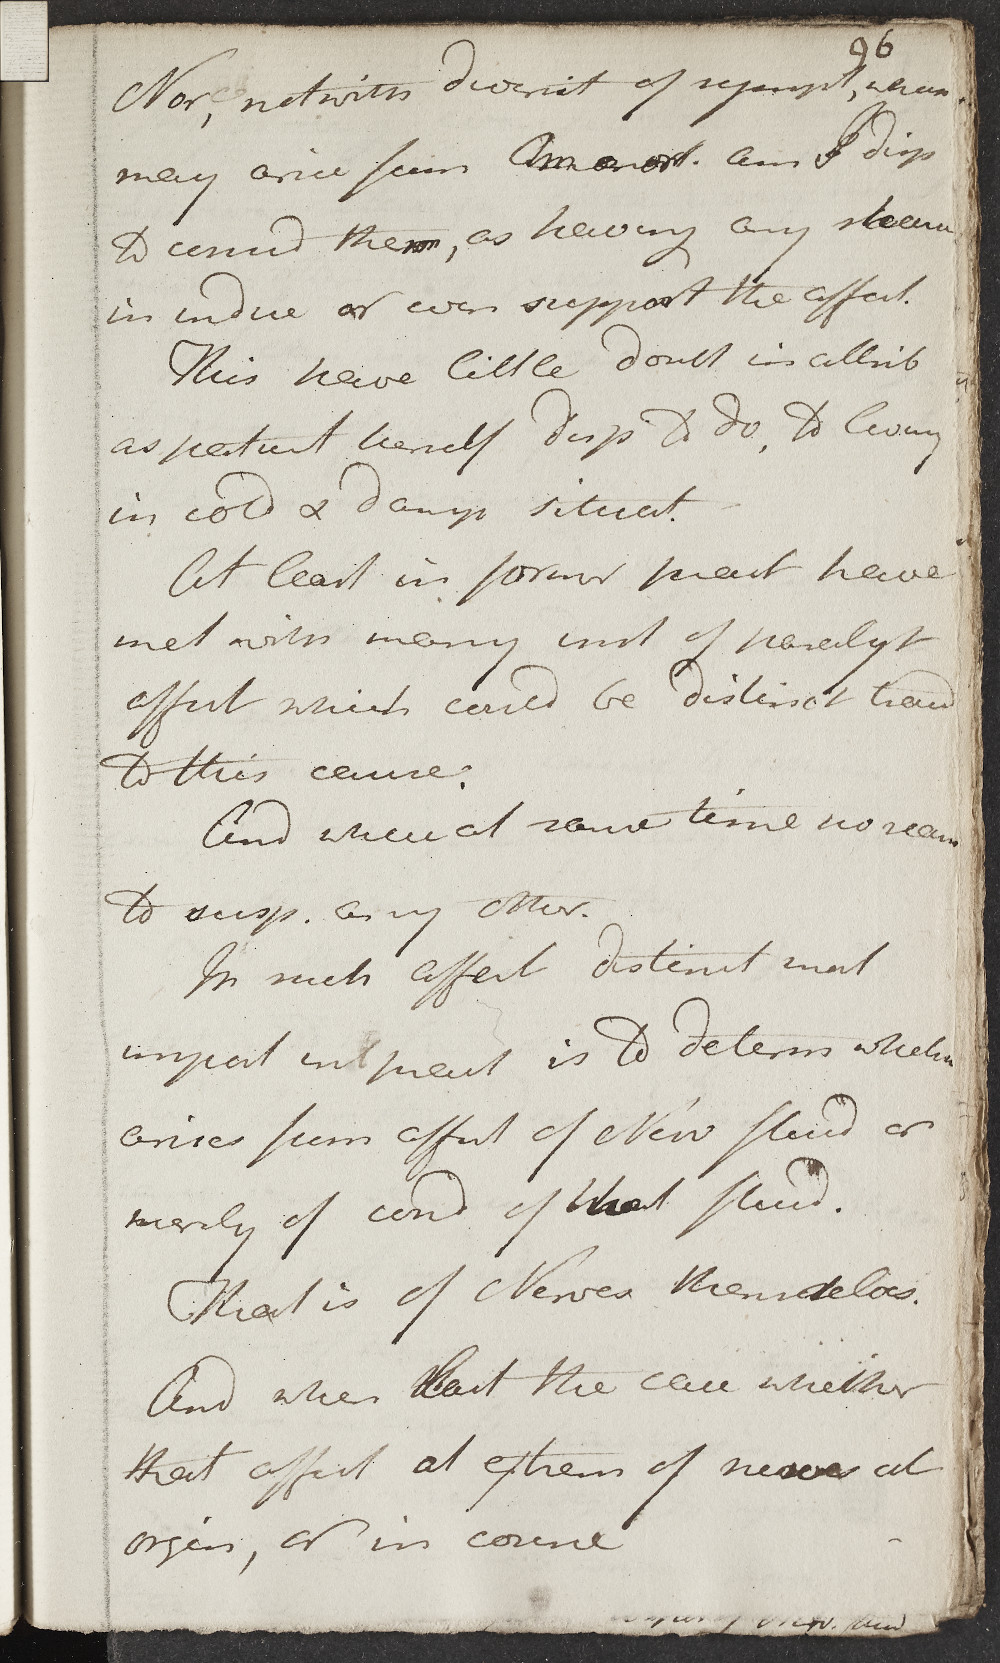 96
Nor, notwith diversit of sympt, when
may arise from Amenorr. am I disp
to consid them, as having any shear
in induc or even support the affect.
This have little doubt in attrib
as patient herself disp to do, to living
in cold & damp situat.
At least in former pract have
met with many inst of paralyt
affect which could be distinct trac'd
to this cause.
And where at same time no reas
to susp. any other.
In such affect distinct most
import in pract is to determ wheth
arises from affect of Nerv fluid or
merely of cond of that fluid.
That is of Nerves themselves.
And when last the case whether
that affect at extrem of nerves at
origin, or in course